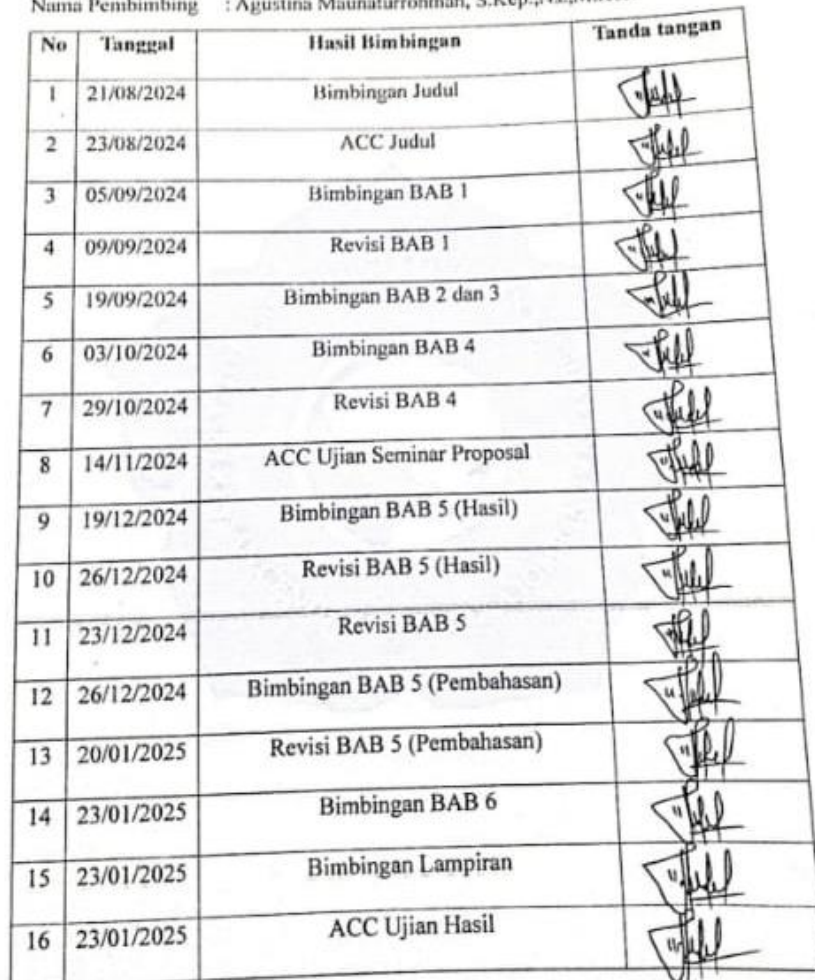 Nama Pembimbing : Agustina Maunaturrohmah, S.Kep.,Ns.,
No Tanggal Hasil Bimbingan Tanda tangan
1 21/08/2024 Bimbingan Judul
2 23/08/2024 ACC Judul
3 05/09/2024 Bimbingan BAB 1
4 09/09/2024 Revisi BAB 1
5 19/09/2024 Bimbingan BAB 2 dan 3
6 03/10/2024 Bimbingan BAB 4
7 29/10/2024 Revisi BAB 4
8 14/11/2024 ACC Ujian Seminar Proposal
9 19/12/2024 Bimbingan BAB 5 (Hasil)
10 26/12/2024 Revisi BAB 5 (Hasil)
11 23/12/2024 Revisi BAB 5
12 26/12/2024 Bimbingan BAB 5 (Pembahasan)
13 20/01/2025 Revisi BAB 5 (Pembahasan)
14 23/01/2025 Bimbingan BAB 6
15 23/01/2025 Bimbingan Lampiran
16 23/01/2025 ACC Ujian Hasil